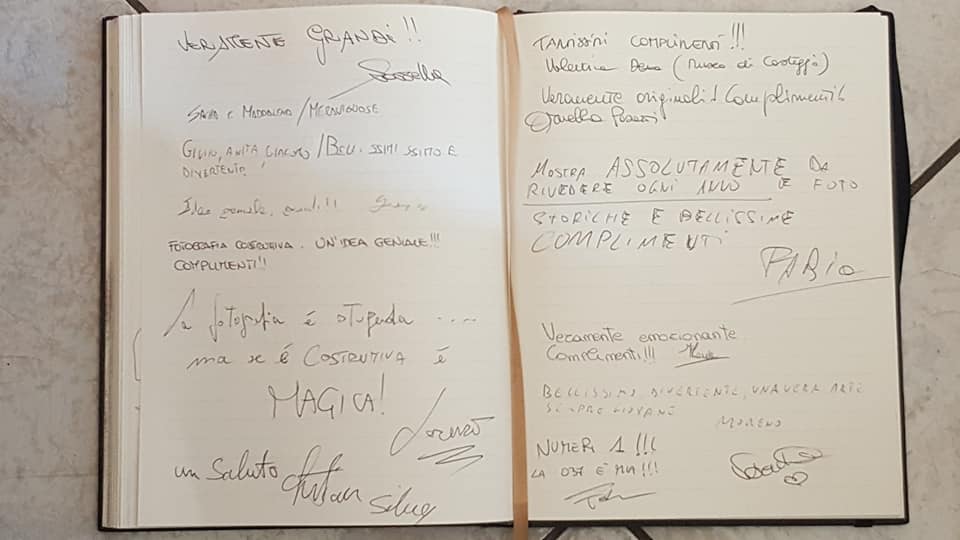 VERAMENTE GRANDI!!
SARA E MADDALENA / MERAVIGLIOSE
GIGLIO, ANITA, GIACOMO / BELLISSIMI SSIMO E
DIVERTENTE!
Idea geniale,
FOTOGRAFIA COSTRUTIVA. UN'IDEA GENIALE!!!
COMPLIMENTI!!
La fotografia é stupenda ....
ma se é COSTRUTIVA é
MAGICA!
Lorenzo
un Saluto
Silvia
TANISSINI COMPLIMENTI!!!
Valentina (Museo di Casteggio)
Veramente originali! Complimenti!
Ornella
MOSTRA ASSOLUTAMENTE DA
RIVEDERE OGNI ANNO E FOTO
STORICHE E BELLISSIME
COMPLIMENTI
FABIO
Veramente emozionante
Complimenti!!!
BELLISSIMO, DIVERTENTE, UNA VERA ARTE
SEMPRE GIOVANE
MORENO
NUMERI 1!!!
LA 037 É MIA!!!